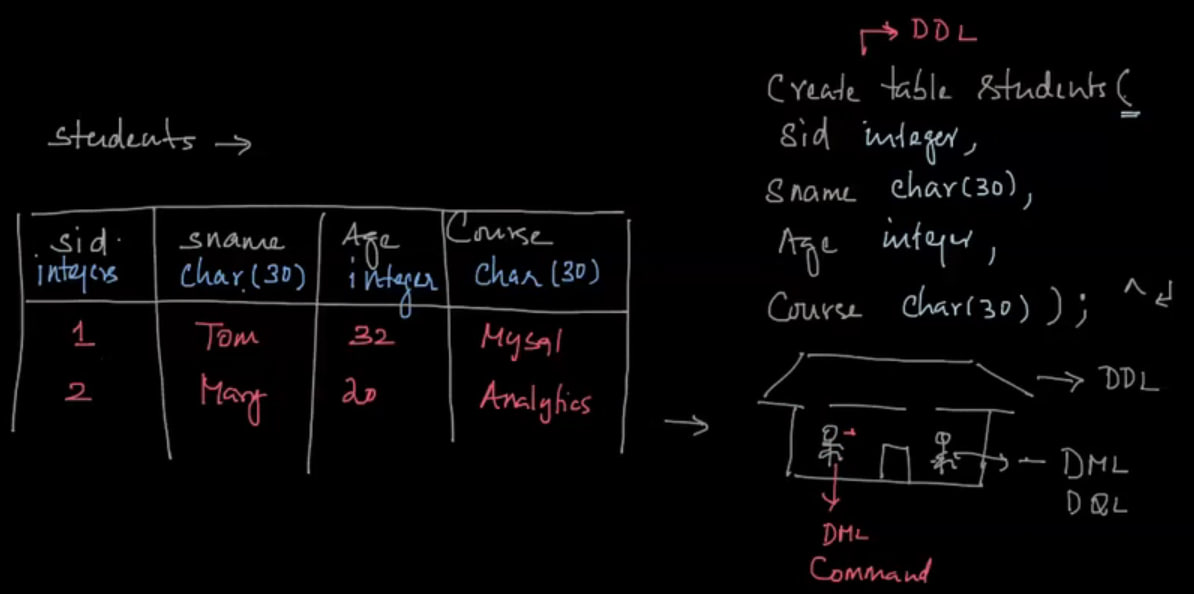 students →
sid. sname Age Course
integers char(30) integer char(30)
1 Tom 32 Mysql
2 Mary 20 Analytics
→ DDL
Create table students(
Sid integer,
Sname char(30),
Age integer,
Course char(30) );
→ DDL
→ - DML
DQL
DML
Command